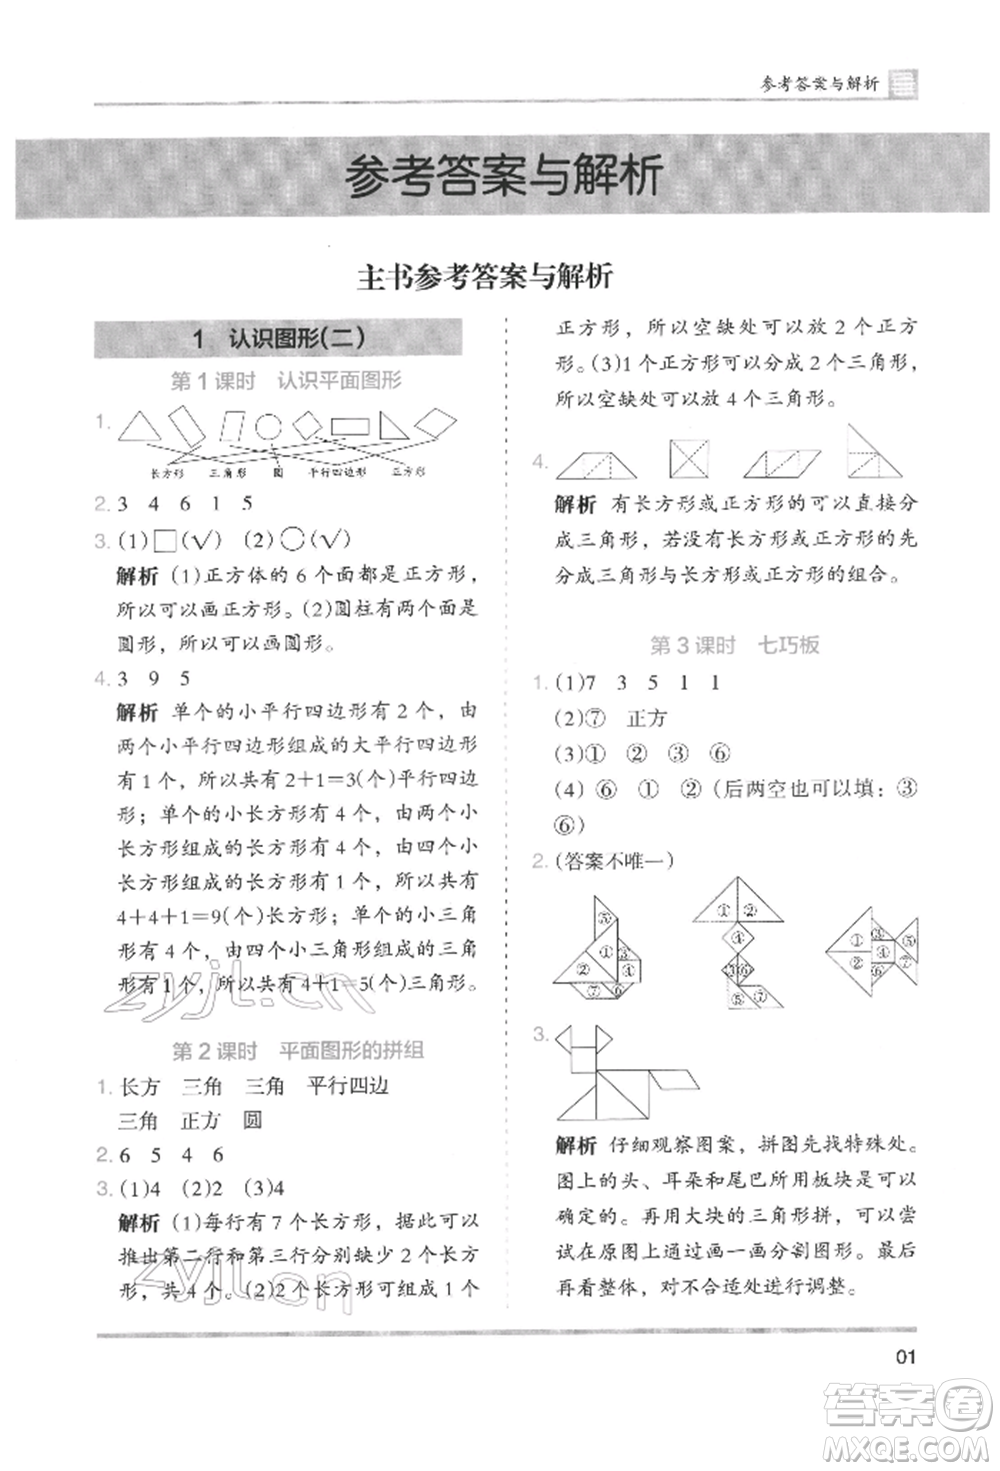 参考答案与解析
参考答案与解析
主书参考答案与解析
1 认识图形(二)
第1课时 认识平面图形
1.
长方形 三角形 圆 平行四边形 正方形
2. 3 4 6 1 5
3. (1)□(√) (2)○(√)
解析 (1)正方体的6个面都是正方形，
所以可以画正方形。(2)圆柱有两个面是
圆形，所以可以画圆形。
4. 3 9 5
解析 单个的小平行四边形有2个，由
两个小平行四边形组成的大平行四边形
有1个，所以共有2+1=3(个)平行四边
形；单个的小长方形有4个，由两个小长
方形组成的长方形有4个，由四个小长
方形组成的长方形有1个，所以共有
4+4+1=9(个)长方形；单个的小三角
形有4个，由四个小三角形组成的三角形
有1个，所以共有4+1=5(个)三角形。
第2课时 平面图形的拼组
1. 长方 三角 三角 平行四边
三角 正方 圆
2. 6 5 4 6
3. (1)4 (2)2 (3)4
解析 (1)每行有7个长方形，据此可以
推出第二行和第三行分别缺少2个长方
形，共4个。(2)2个长方形可以拼成1个
正方形，所以空缺处可以放2个正方
形。(3)1个正方形可以分成2个三角形，
所以空缺处可以放4个三角形。
4.
解析 有长方形或正方形的可以直接分
成三角形，若没有长方形或正方形的先
分成三角形与长方形或正方形的组合。
第3课时 七巧板
1. (1)7 3 5 1 1
(2)⑦ 正方
(3)① ② ③ ⑥
(4) ⑥ ① ②(后两空也可以填：③
⑥)
2. (答案不唯一)
⑤ ③ ② ① ⑥ ⑦
① ② ④ ③ ⑥ ⑤ ⑦
① ③ ⑤ ④ ② ⑥ ⑦
3.
解析 仔细观察图案，拼图先找特殊处。
图上的头、耳朵和尾巴所用板块是可以
确定的。再用大块的三角形拼，可以尝
试在原图上画一画分割图形。最后
再看整体，对不合适处进行调整。
01
zyjl.cn
zyjl.cn
答案卷
MXQE.COM